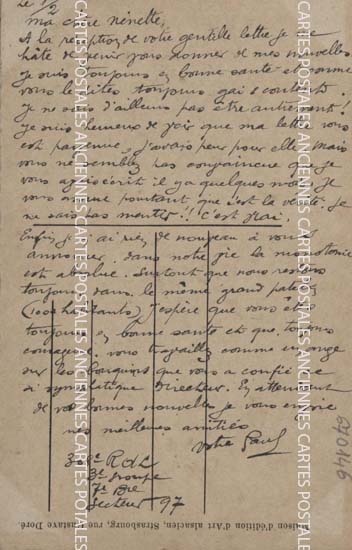 le 1/2
ma chère Ninette,
A la réception de votre gentille lettre je me
hâte de venir vous donner de mes nouvelles
Je suis toujours en bonne santé et comme
vous le dites toujours gai & content.
je ne veux d'ailleurs pas être autrement!
je suis heureux de voir que ma lettre vous
est parvenue, j'avais peur pour elle. Mais
vous ne semblez pas convaincue que je
vous ai écrit il y a quelques mois. Je
vous assure pourtant que c'est la vérité. Je
ne sais pas mentir!! C'est vrai.
Enfin je n'ai rien de nouveau à vous
annoncer, dans notre vie la monotonie
est absolue. Surtout que nous restons
toujours dans le même grand patelin
(1000 habitants) J'espère que vous êtes
toujours en bonne santé et que, toujours
courageuse vous travaillez comme un ange
sur les bouquins que vous a confié ce
si sympathique Directeur. En attendant
de vos bonnes nouvelles je vous envoie
mes meilleures amitiés
Votre Paul
3e groupe
Secteur 97
670146
Maison d'édition d'Art alsacien, Strasbourg, rue Gustave Doré.
CARTES POSTALES ANCIENNES